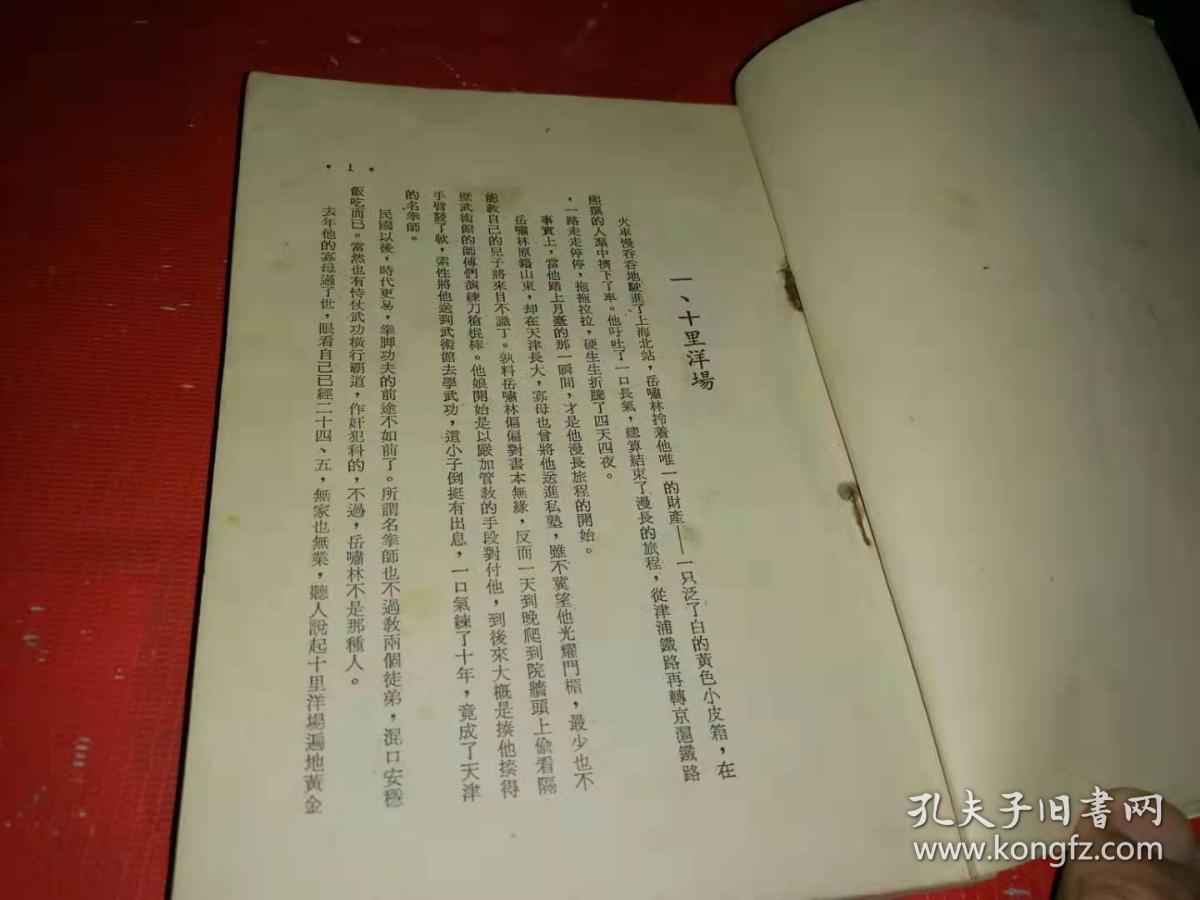 一、十里洋場
火車慢吞吞地駛進了上海北站，岳嘯林拎着他唯一的財產——一只泛了白的黃色小皮箱，在
熙攘的人羣中擠下了車。他吁吐了一口長氣，總算結束了漫長的旅程，從津浦鐵路再轉京滬鐵路
，一路走走停停，拖拖拉拉，硬生生折騰了四天四夜。
事實上，當他踏上月臺的那一瞬間，才是他漫長旅程的開始。
岳嘯林原籍山東，却在天津長大，寡母也曾將他送進私塾，雖不冀望他光耀門楣，最少也不
能教自己的兒子將來目不識丁。孰料岳嘯林偏偏對書本無緣，反而一天到晚爬到院牆頭上偷看隔
壁武術館的師傅們演練刀槍棍棒。他娘開始是以嚴加管教的手段對付他，到後來大概是揍他揍得
手臂發了軟，索性將他送到武術館去學武功，這小子倒挺有出息，一口氣練了十年，竟成了天津
的名拳師。
民國以後，時代更易，拳脚功夫的前途不如前了。所謂名拳師也不過教兩個徒弟，混口安穩
飯吃而已。當然也有恃仗武功橫行覇道，作奸犯科的，不過，岳嘯林不是那種人。
去年他的寡母過了世，眼看自己已經二十四、五，無家也無業，聽人說起十里洋場遍地黃金
• 1 •
孔夫子旧书网
www.kongfz.com